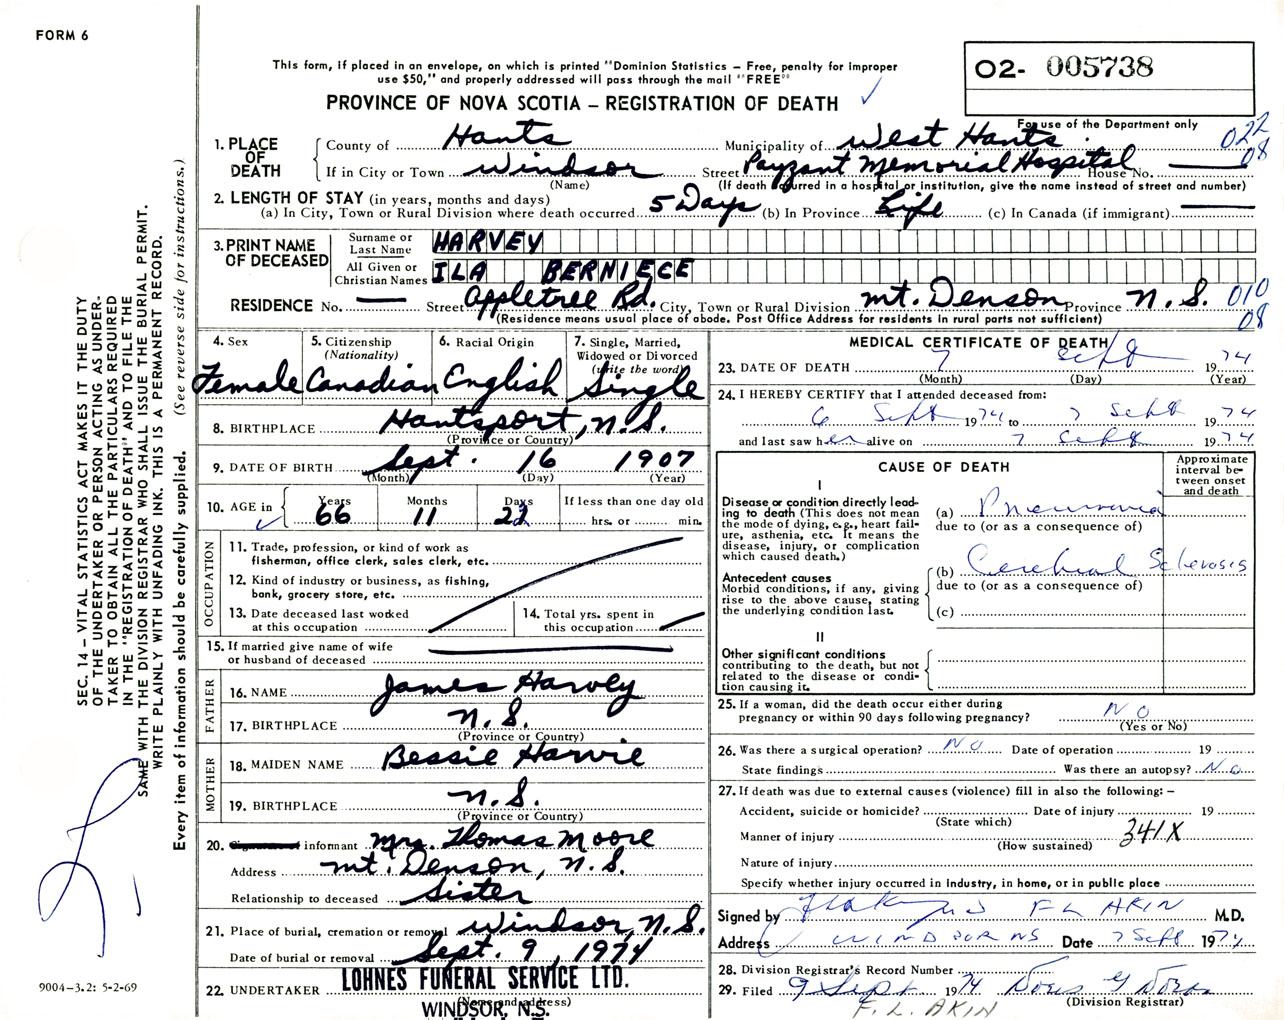 FORM 6
This form, if placed in an envelope, on which is printed "Dominion Statistics – Free, penalty for improper
use $50," and properly addressed will pass through the mail "FREE"
O2- 005738
PROVINCE OF NOVA SCOTIA – REGISTRATION OF DEATH ✓
For use of the Department only
022
08
1. PLACE OF DEATH
County of Hants Municipality of West Hants
If in City or Town Windsor Street Payzant Memorial Hospital House No. —
(Name) (If death occurred in a hospital or institution, give the name instead of street and number)
2. LENGTH OF STAY (in years, months and days)
(a) In City, Town or Rural Division where death occurred 5 Days (b) In Province Life (c) In Canada (if immigrant) —
3. PRINT NAME OF DECEASED
Surname or Last Name HARVEY
All Given or Christian Names ILA BERNIECE
RESIDENCE No. — Street Appletree Rd. City, Town or Rural Division Mt. Denson Province N.S. 010
(Residence means usual place of abode. Post Office Address for residents in rural parts not sufficient) 08
4. Sex Female
5. Citizenship (Nationality) Canadian
6. Racial Origin English
7. Single, Married, Widowed or Divorced (write the word) Single
8. BIRTHPLACE Hantsport, N.S.
(Province or Country)
9. DATE OF BIRTH Sept. 16 1907
(Month) (Day) (Year)
10. AGE in Years 66 Months 11 Days 22 If less than one day old
hrs. or min.
OCCUPATION
11. Trade, profession, or kind of work as
fisherman, office clerk, sales clerk, etc.
12. Kind of industry or business, as fishing,
bank, grocery store, etc.
13. Date deceased last worked
at this occupation
14. Total yrs. spent in
this occupation
15. If married give name of wife
or husband of deceased
FATHER
16. NAME James Harvey
17. BIRTHPLACE N.S.
(Province or Country)
MOTHER
18. MAIDEN NAME Bessie Harvie
19. BIRTHPLACE N.S.
(Province or Country)
20. informant Mrs. Thomas Moore
Address Mt. Denson, N.S.
Relationship to deceased Sister
21. Place of burial, cremation or removal Windsor, N.S.
Date of burial or removal Sept. 9, 1974
22. UNDERTAKER LOHNES FUNERAL SERVICE LTD.
(Name and address)
WINDSOR, N.S.
MEDICAL CERTIFICATE OF DEATH
23. DATE OF DEATH 7 Sept 1974
(Month) (Day) (Year)
24. I HEREBY CERTIFY that I attended deceased from:
6 Sept 1974 to 7 Sept 1974
and last saw her alive on 7 Sept 1974
CAUSE OF DEATH
Approximate interval between onset and death
I
Disease or condition directly lead-
ing to death (This does not mean
the mode of dying, e.g., heart fail-
ure, asthenia, etc. It means the
disease, injury, or complication
which caused death.)
(a) Pneumonia
due to (or as a consequence of)
Antecedent causes
Morbid conditions, if any, giving
rise to the above cause, stating
the underlying condition last.
(b) Cerebral Sclerosis
due to (or as a consequence of)
(c)
II
Other significant conditions
contributing to the death, but not
related to the disease or condi-
tion causing it.
25. If a woman, did the death occur either during
pregnancy or within 90 days following pregnancy? NO
(Yes or No)
26. Was there a surgical operation? NO Date of operation 19
State findings Was there an autopsy? NO
27. If death was due to external causes (violence) fill in also the following: –
Accident, suicide or homicide? Date of injury 19
(State which)
Manner of injury 341X
(How sustained)
Nature of injury
Specify whether injury occurred in industry, in home, or in public place
Signed by F L AKIN M.D.
Address WINDSOR NS Date 7 Sept 1974
28. Division Registrar's Record Number
29. Filed 9 Sept 1974 Doris
(Division Registrar)
F. L. AKIN
SEC. 14 – VITAL STATISTICS ACT MAKES IT THE DUTY
OF THE UNDERTAKER OR PERSON ACTING AS UNDER-
TAKER TO OBTAIN ALL THE PARTICULARS REQUIRED
IN THE "REGISTRATION OF DEATH" AND TO FILE THE
SAME WITH THE DIVISION REGISTRAR WHO SHALL ISSUE THE BURIAL PERMIT.
WRITE PLAINLY WITH UNFADING INK. THIS IS A PERMANENT RECORD.
Every item of information should be carefully supplied. (See reverse side for instructions.)
9004-3.2: 5-2-69